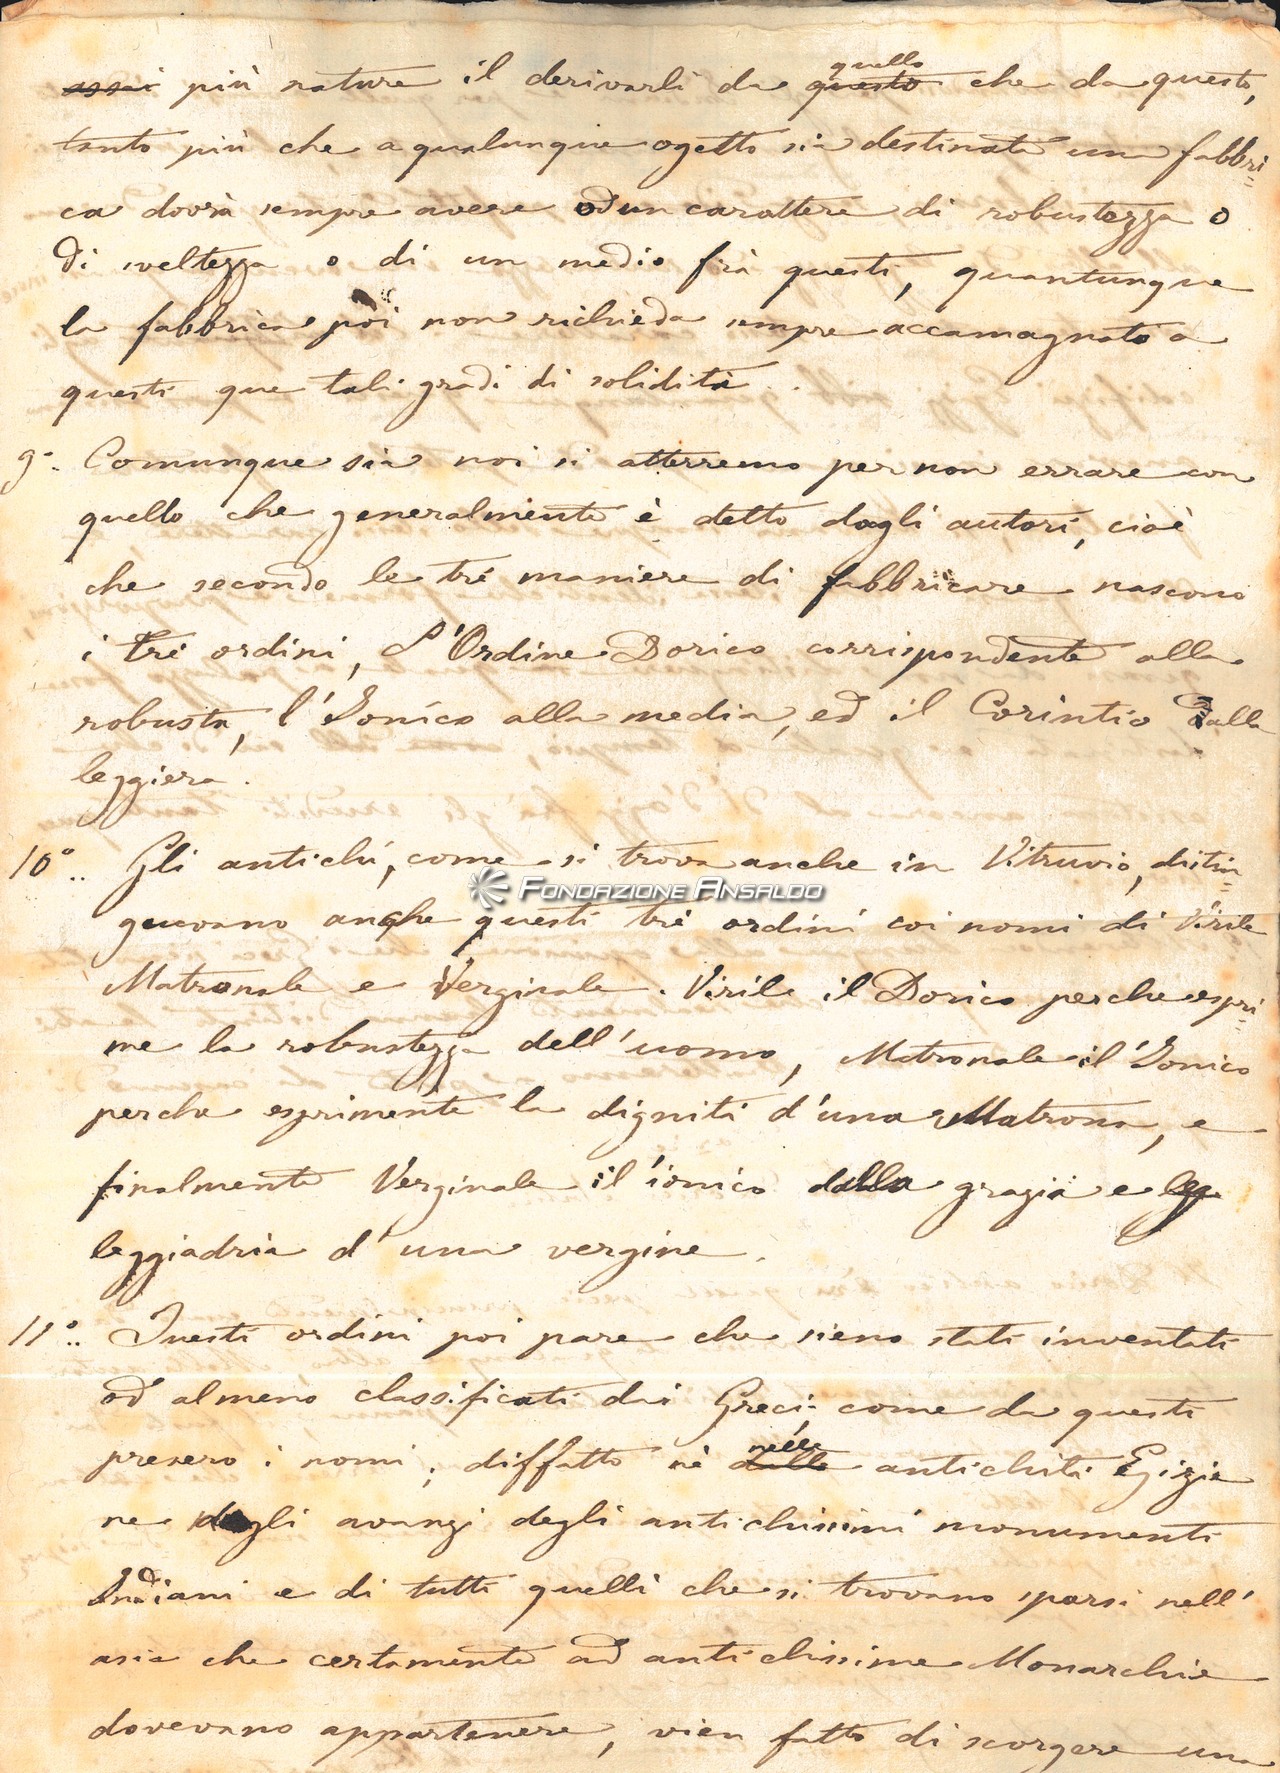 assai più nature il derivarli da questo quello che da questo,
tanto più che a qualunque ogetto sia destinata una fabbri=
ca dovrà sempre avere od un carattere di robustezza o
di sveltezza o di un medio frà questi, quantunque
la fabbrica poi non richieda sempre accamagnato a
questi que tali gradi di solidità.
9°. Comunque sia noi si atterremo per non errare con
quello che generalmente è detto dagli autori, cioè
che secondo le tré maniere di fabbricare nascono
i tré ordini, L'Ordine Dorico corrispondente alla
robusta, l'Jonico alla media, ed il Corintio alla
leggiera.
10°.. Gli antichi, come si trova anche in Vitruvio, distin=
guevano anche questi tré ordini coi nomi di Virile
Matronale e Verginale. Virile il Dorico perche espri=
me la robustezza dell'uomo, Matronale il Jonico
perche esprimente la dignità d'una Matrona, e
finalmente Verginale il ionico dalla grazia e
leggiadria d'una vergine.
11°.. Questi ordini poi pare che sieno stati inventati
od almeno classificati dai Greci; come da questi
presero i nomi, diffatto nè dalle nelle antichità Egizie
ne degli avanzi degli antichissimi monumenti
Indiani e di tutti quelli che si trovano sparsi nell'
asia che certamente ad antichissime Monarchie
dovevano appartenere, vien fatto di scorgere una
Fondazione Ansaldo